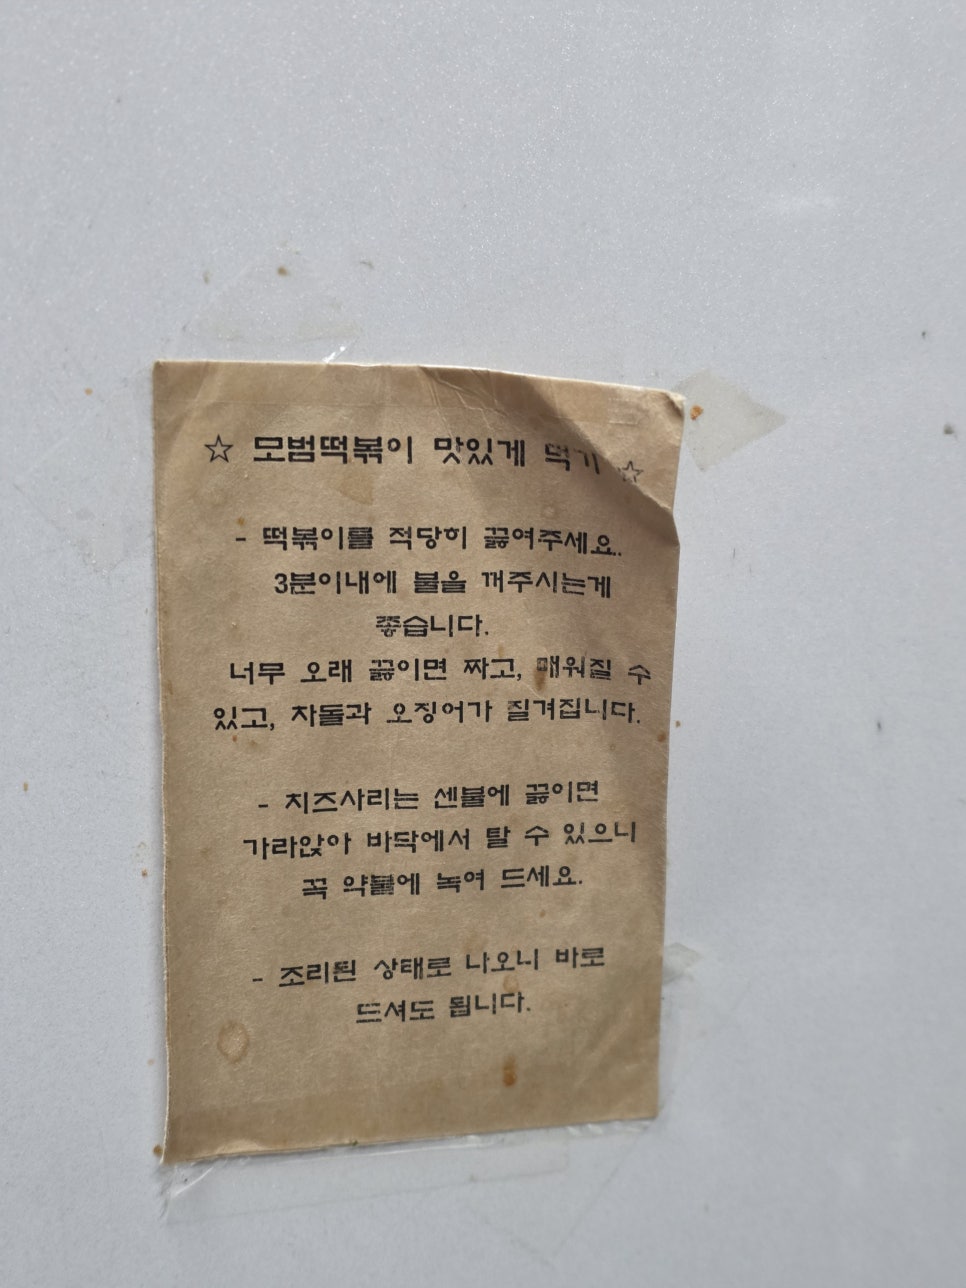 ☆ 모범떡볶이 맛있게 먹기 ☆
- 떡볶이를 적당히 끓여주세요..
3분이내에 불을 꺼주시는게
좋습니다.
너무 오래 끓이면 짜고, 매워질 수
있고, 차돌과 오징어가 질겨집니다.
- 치즈사리는 센불에 끓이면
가라앉아 바닥에서 탈 수 있으니
꼭 약불에 녹여 드세요.
- 조리된 상태로 나오니 바로
드셔도 됩니다.